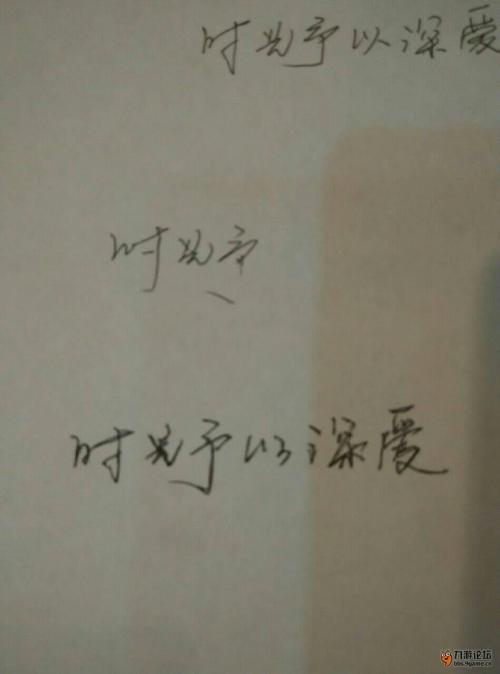 时光予以深爱
时光予
时光予以深爱
九游论坛
bbs.9game.cn